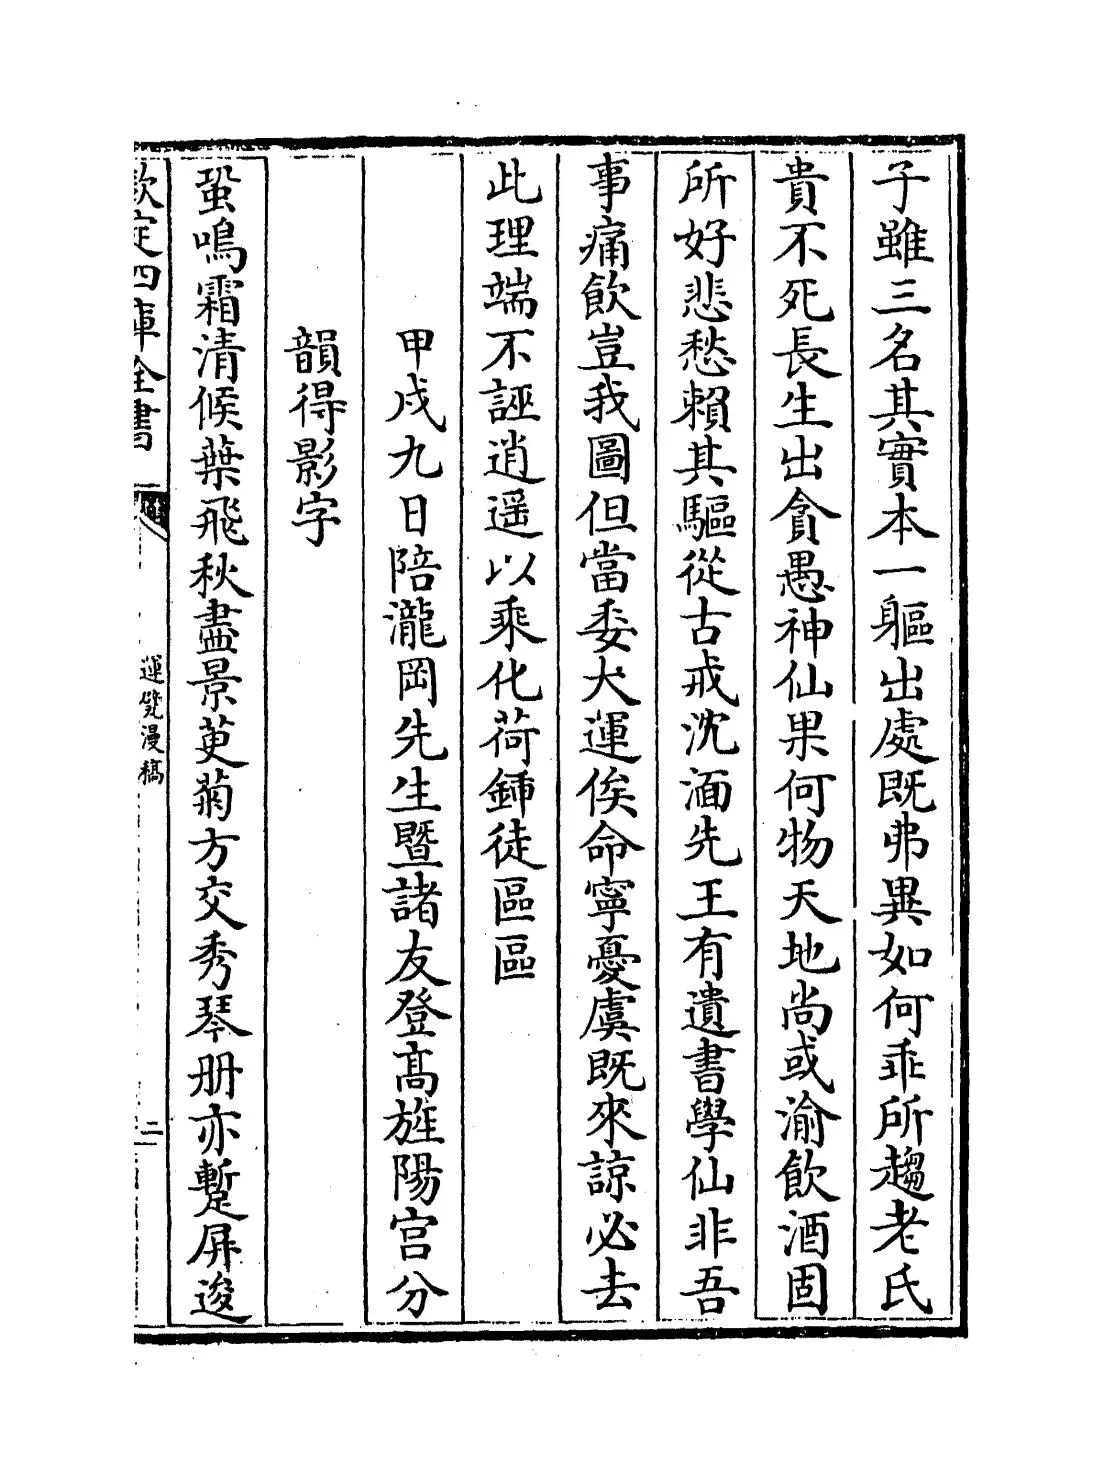 子雖三名其實本一軀出處既弗異如何乖所趨老氏
貴不死長生出貪愚神仙果何物天地尚或渝飲酒固
所好悲愁賴其驅從古戒沈湎先王有遺書學仙非吾
事痛飲豈我圖但當委大運俟命寧憂虞既來諒必去
此理端不誣逍遥以乘化荷鍤徒區區
甲戌九日陪瀧岡先生暨諸友登髙旌陽宫分
韻得影字
蛩鳴霜清候葉飛秋盡景萸菊方交秀琴册亦暫屏逡
欽定四庫全書
運甓漫稿
二